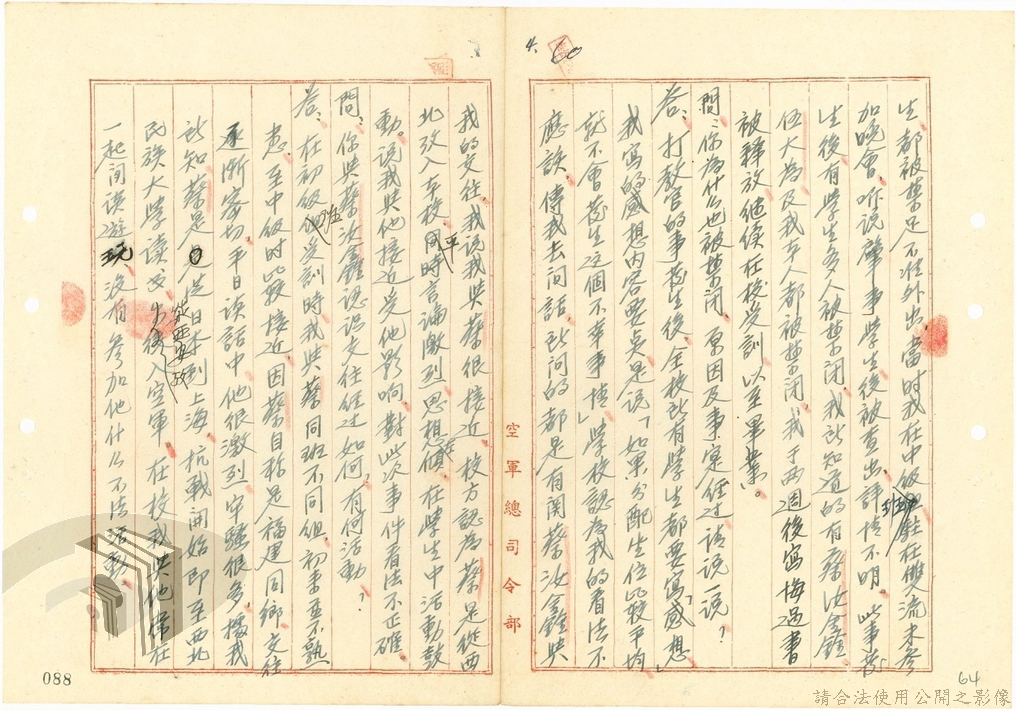 4.
60
生都被禁足不准外出,當時我在中級班駐在
未參
加晚會,
說肇事學生後被查出,詳情不明。此事發
生後有學生多人被禁閉,我所知道的有蔡汝鑫
伍大為及我本人都被禁閉,我于兩週後寫悔過書
被釋放繼續在校受訓以至畢業。
問:你為什么也被禁閉,原因及事實經过請說一說?
答:打教官的事發生後,全校所有學生都要寫「感想」
我寫的感想內容要点是說「如果分配生位比較平均
就不會發生這個不幸事情」學校認為我的看法不
應該,傳我去问話,所问的都是有関蔡汝鑫與
空軍總司令部
我的交往,我說我與蔡很接近,校方認為蔡是從西
北攻入本校,平時言論激烈思想
傾,在學生中活動鼓
動。說我與他接近受他影响,對此次事件看法不正確
問:你與蔡汝鑫認識交往經过如何?有何活动?
答:在初級班受訓時我與蔡同班不同組,初來並不熟
悉,至中級時比較接近,因蔡自称是福建同鄉,交往
逐漸密切,平日談話中他很激烈,牢騷很多,據我
所知蔡是
是日本到上海,抗戰開始即至西北
民族大學讀書,
後
入空軍,在校我與他常在
一起闲談遊玩,没有參加他什么不法活動。
088
64
請合法使用公開之影像